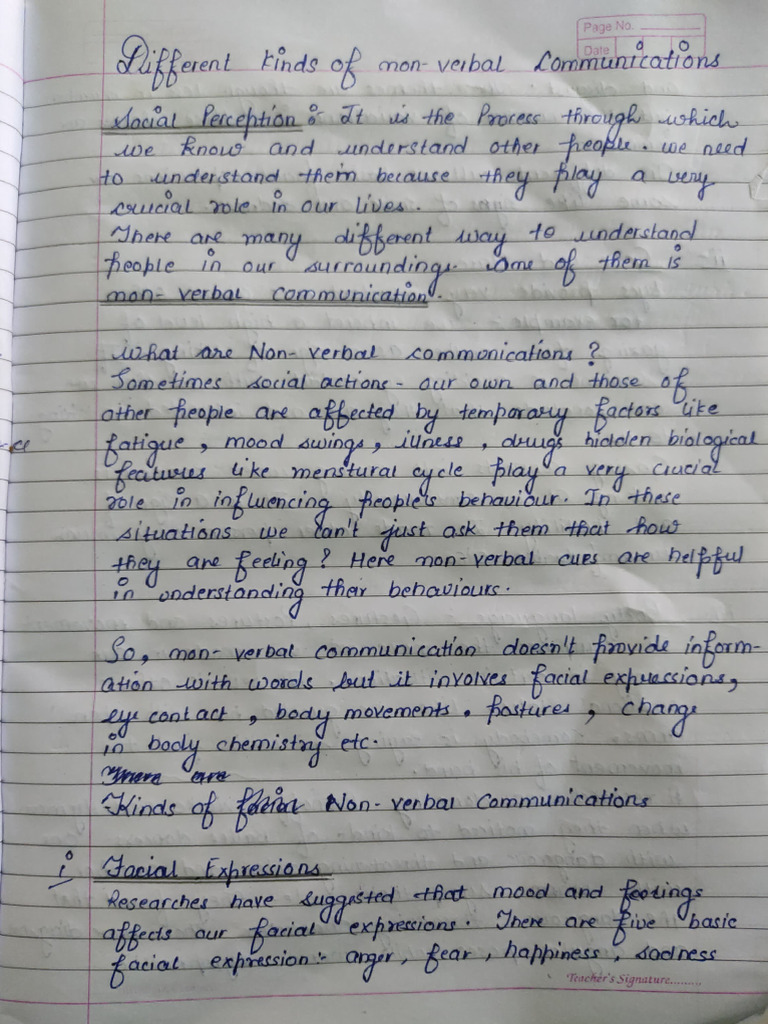 Page No.
Date
Different kinds of non-verbal Communications
Social Perception :- It is the Process through which
we know and understand other people. we need
to understand them because they play a very
crucial role in our lives.
There are many different way to understand
people in our surroundings. One of them is
non-verbal communication.
What are Non-verbal communications?
Sometimes social actions - our own and those of
other people are affected by temporary factors like
fatigue, mood swings, illness, drugs hidden biological
features like menstural cycle play a very crucial
role in influencing people's behaviour. In these
situations we can't just ask them that how
they are feeling? Here non-verbal cues are helpful
in understanding their behaviours.
So, non-verbal communication doesn't provide inform-
ation with words but it involves facial expressions,
eye contact, body movements, postures, change
in body chemistry etc.
There are
Kinds of Non-verbal Communications
i Facial Expressions
Researches have suggested that mood and feelings
affects our facial expressions. There are five basic
facial expression:- anger, fear, happiness, sadness
Teacher's Signature.........